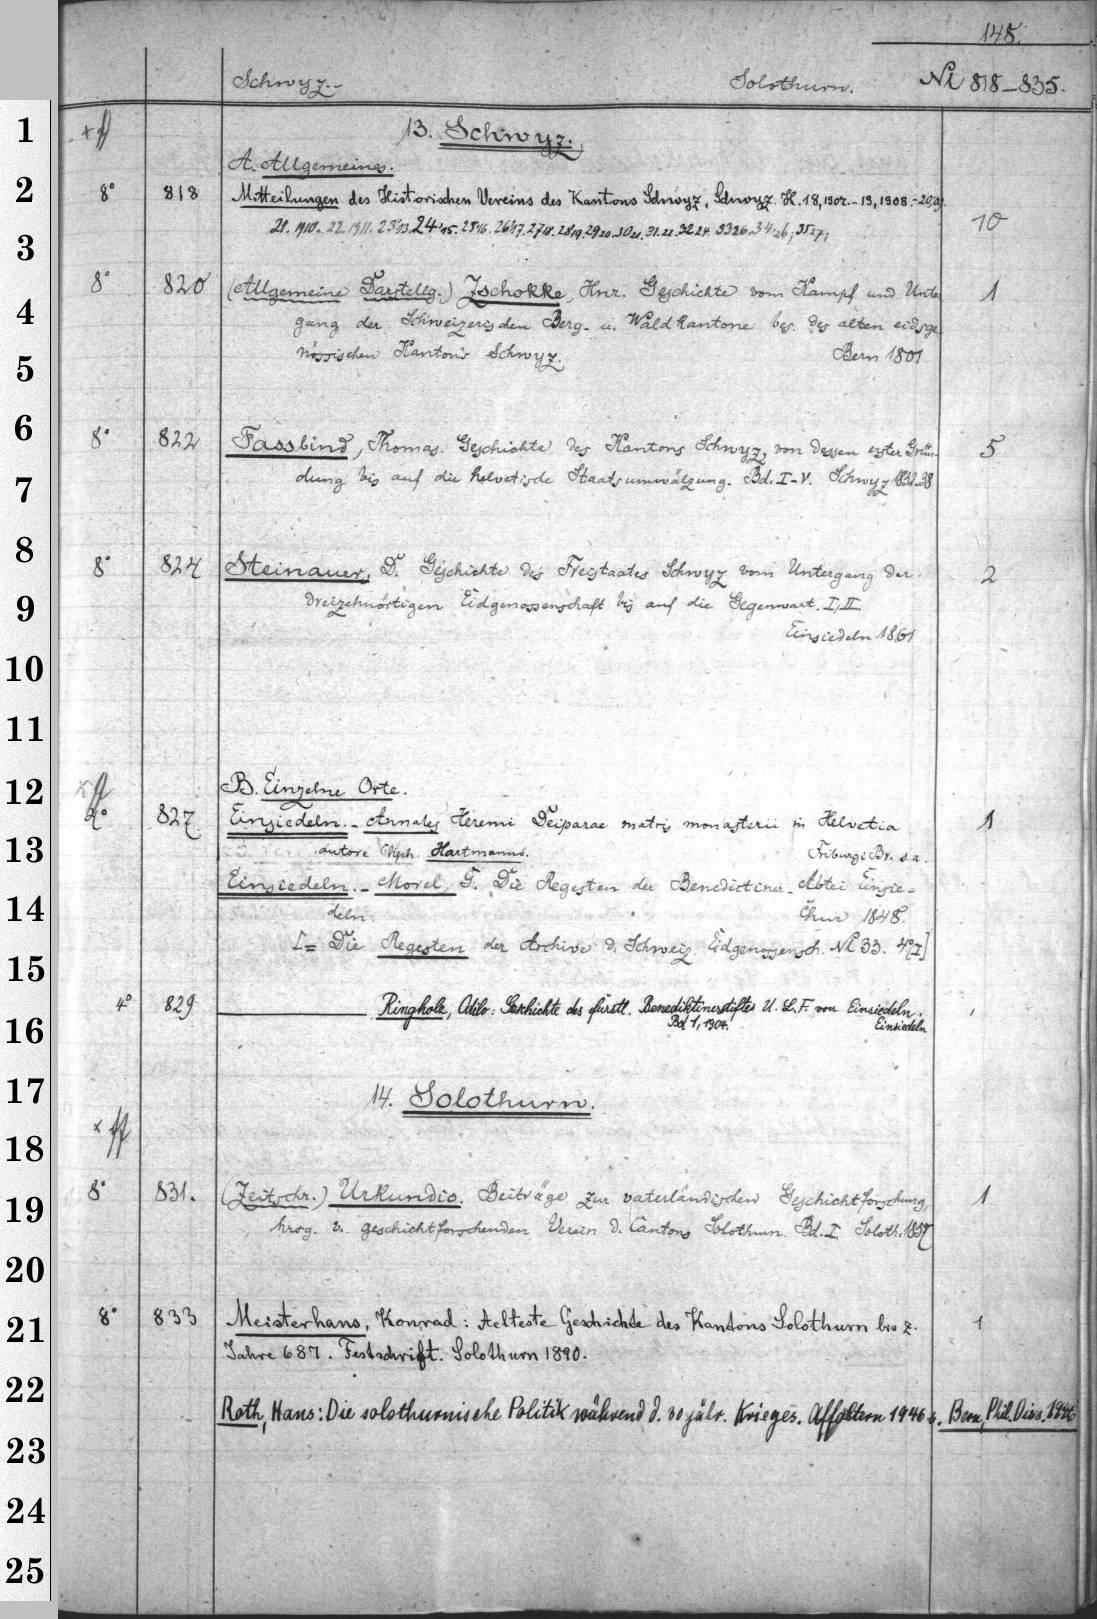 148.
Schwyz.- Solothurn. No 818-835.
1 13. Schwyz.
A. Allgemeines.
2 8° 818 Mitteilungen des Historischen Vereins des Kantons Schwyz, Schwyz. H. 18, 1907.-19, 1908.-20,09.
21. 1910. 22. 1911. 23/13. 24/15. 25/16. 26/17. 27/18. 28/19. 29/20. 30/21. 31.22. 32 24. 33 26. 34 26, 35 27, 10
3
8° 820 (Allgemeine Darstellg.) Zschokke, Hnr. Geschichte vom Kampf und Unter 1
4 gang der Schweizerischen Berg- u. Waldkantone bes. des alten eidsge
5 nössischen Kantons Schwyz. Bern 1801
6 8° 822 Fassbind, Thomas. Geschichte des Kantons Schwyz, von dessen erster Grün- 5
7 dung bis auf die helvetische Staatsumwälzung. Bd. I-V. Schwyz 1832-38
8 8° 824 Steinauer, D. Geschichte des Freistaates Schwyz vom Untergang der 2
9 dreizehnörtigen Eidgenossenschaft bis auf die Gegenwart. I, II.
Einsiedeln 1861
10
11
12 B. Einzelne Orte.
2° 827. Einsiedeln.- Annales Heremi Deiparae matris monasterii in Helvetia 1
13 autore Chph. Hartmanno. Friburgi Br. s.a.
Einsiedeln.- Morel, G. Die Regesten der Benedictiner-Abtei Einsie-
14 deln. Chur 1848.
[= Die Regesten der Archive d. Schweiz. Eidgenossensch. No 33. 4° I]
15
16 4° 829 Ringholz, Odilo: Geschichte des fürstl. Benediktinerstiftes U. L. F. von Einsiedeln.
Bd 1, 1904. Einsiedeln
17 14. Solothurn.
18
19 8° 831. (Zeitschr.) Urkundio. Beiträge zur vaterländischen Geschichtforschung, 1
hrsg. v. geschichtforschenden Verein d. Cantons Solothurn. Bd. I Soloth. 1857
20
21 8° 833 Meisterhans, Konrad: Aelteste Geschichte des Kantons Solothurn bis z. 1
Jahre 687. Festschrift. Solothurn 1890.
22
Roth, Hans: Die solothurnische Politik während d. 30 jähr. Krieges. Affoltern 1946. Bern, Phil. Diss. 1946
23
24
25